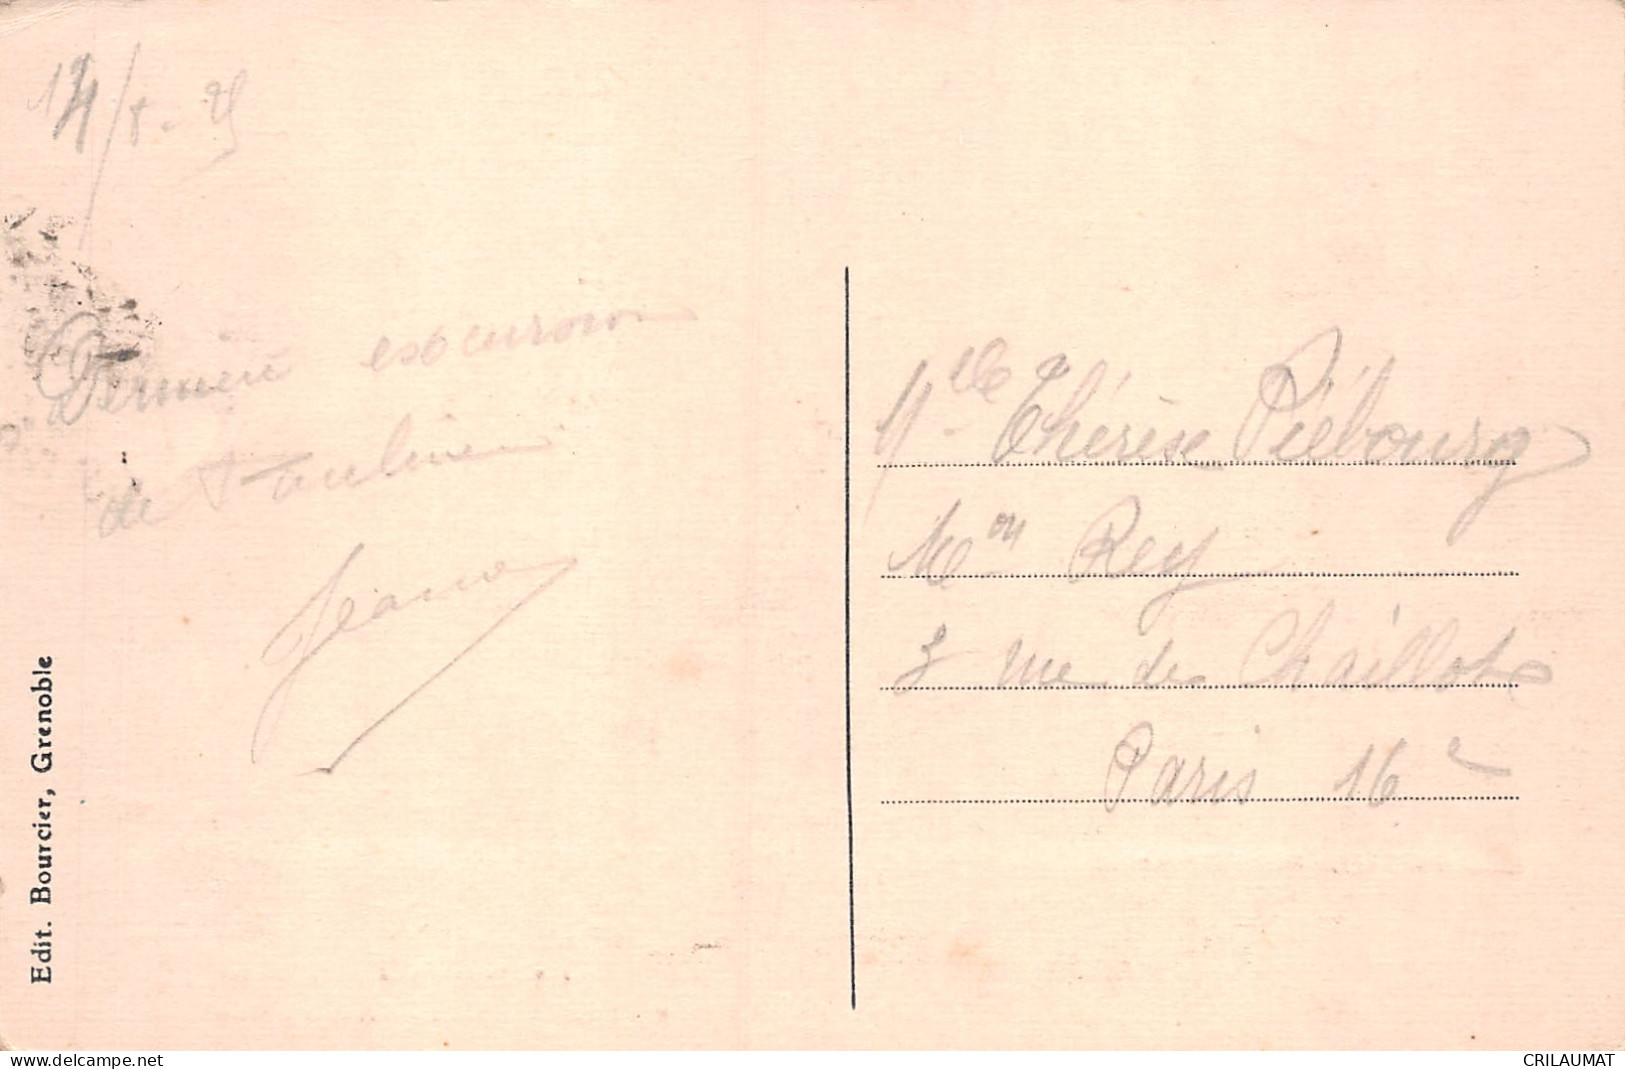 14/8-25
Dernière excursion
de
Jeanne
Edit. Bourcier, Grenoble
Mlle Thérèse Piébourg
Mon Rey
3 rue de Chaillot
Paris 16e
delcampe.net
CRILAUMAT